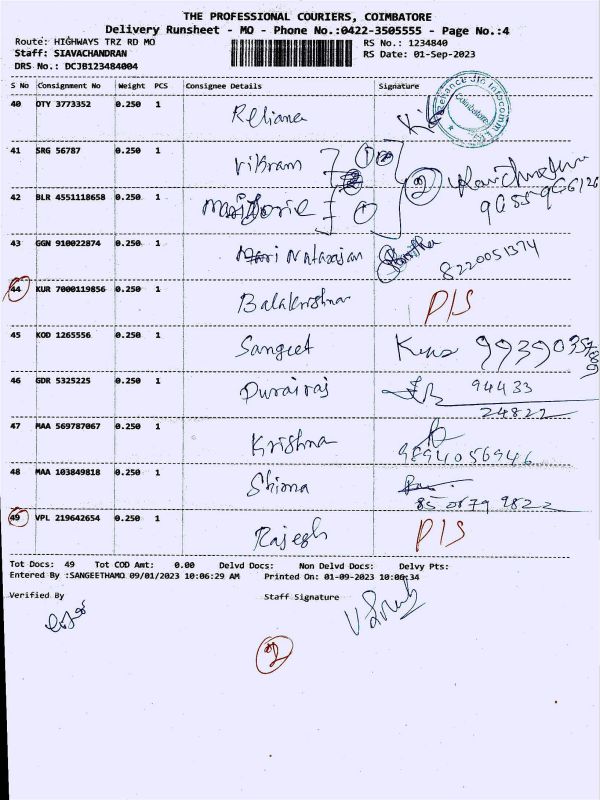 THE PROFESSIONAL COURIERS, COIMBATORE
Delivery Runsheet - MO - Phone No.:0422-3505555 - Page No.:4
Route: HIGHWAYS TRZ RD MO RS No.: 1234840
Staff: SIAVACHANDRAN RS Date: 01-Sep-2023
DRS No.: DCJB123484004
S No Consignment No Weight PCS Consignee Details Signature
40 OTY 3773352 0.250 1 Reliance
Reliance Jio Infocomm Ltd
Coimbatore
41 SRG 56787 0.250 1 Vikram
2
42 BLR 4551118658 0.250 1 Marjorie 1
43 GGN 910022874 0.250 1 Mari Natarajan 8220051374
44 KUR 7000119856 0.250 1 Balakrishna P/S
45 KOD 1265556 0.250 1 Sangeet
46 GDR 5325225 0.250 1 Durairaj 94433
24822
47 MAA 569787067 0.250 1 Krishna 9894056946
48 MAA 103849818 0.250 1
49 VPL 219642654 0.250 1 Rajesh P/S
Tot Docs: 49 Tot COD Amt: 0.00 Delvd Docs: Non Delvd Docs: Delvy Pts:
Entered By :SANGEETHAMO 09/01/2023 10:06:29 AM Printed On: 01-09-2023 10:06:34
Verified By Staff Signature
2